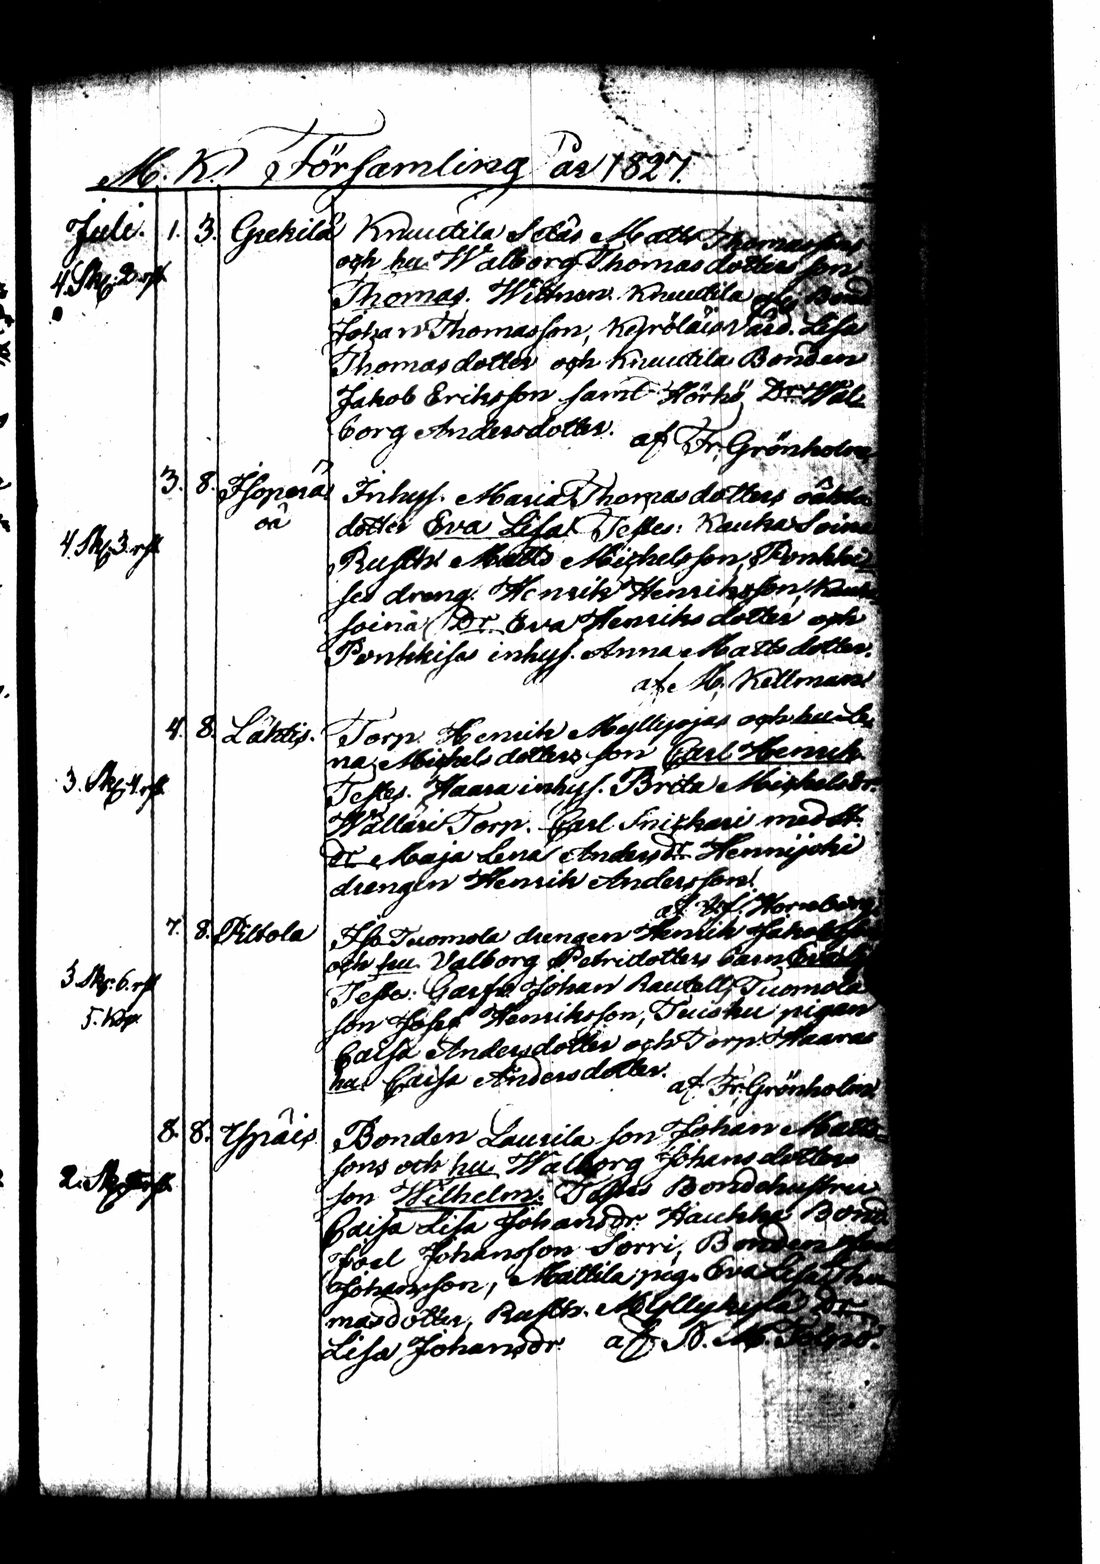 M. K. Församling år 1827.
Juli. 1. 3. Grekilä Knuutila Sdäs Matts Thomassons
och hu Walborg Thomasdotters son
4. Sk. 2. rst.
Thomas. Wittnen Knuutila Bond
Johan Thomasson, Lisa
Thomasdotter och Knuutila Bonden
Jakob Eriksson samt Hörkö Dr. Wal-
borg Andersdotter.
af Fr. Grönholm
3. 8. Isoperä Inhys. Maria Thomasdotters oäkta
oä dotter Eva Lisa. Testes: Kauka Soina
4. Sk. 3. rst. Rusth. Matts Michelsson, Ponkki-
ses dreng Henrik Henriksson, Kauka
soina Dr. Eva Henriksdotter och
Ponkkises inhys. Anna Mattsdotter.
af M. Kellman
4. 8. Lähtis. Torp. Henrik Myllyojas och hu Le
na Michelsdotters son Carl Henrik
3. Sk. 4. rst. Testes. Haara inhys. Brita Michelsdr.
Wälläri Torp. Carl Snickari med
dr Maja Lena Andersdr Hennijoki
drengen Henrik Andersson.
af Horneborg.
7. 8. Piltola Iso Tuomola drengen Henrik Jakobsson
och hu. Valborg Petridotters barn
3. Sk. 6. rst Teste: Johan Rautell, Tuomola
5. Kop. son Josef Henriksson, Tuisku pigan
Caisa Andersdotter och Torp. Haaras
hu. Caisa Andersdotter.
af Fr. Grönholm
8. 8. Ypäis Bonden Laurila son Johan Matts-
sons och hu Walborg Johansdotters
2. Sk. rst. son Wilhelm. Testes Bondehustru
Caisa Lisa Johansdr. Haukka Bond
Joel Johansson Sorri, Bonden
Johansson, Mattila pig. Eva Lisa Tho-
masdotter, Rusth. Myllykylä Dr
Lisa Johansdr. af N. M. Tolpo.